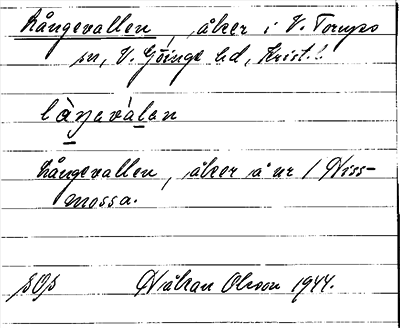 Långevallen, åker i V. Torups
sn, V. Göinge hd, Krist. l.
làŋevàlen
Långevallen, åker å nr 1 Hiss-
mossa.
Håkan Olsson 1944.